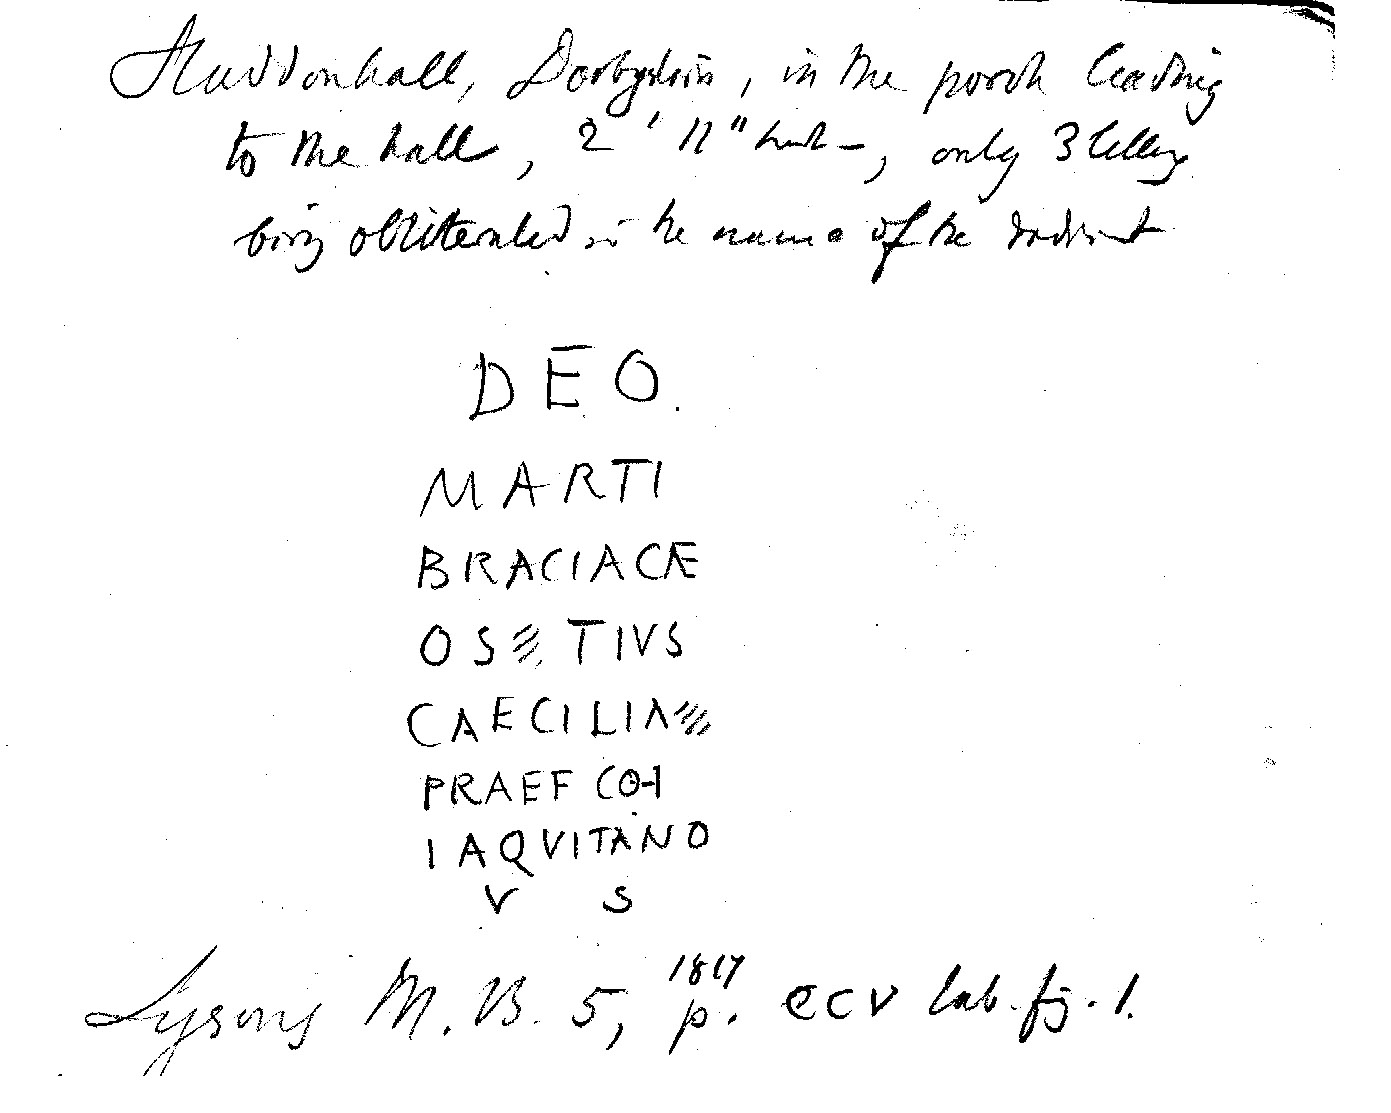 Haddonhall, Derbyshire, in the porch leading
to the hall, 2' 11" high, only 3 letters
being obliterated in the name of the dedicant
DEO.
MARTI
BRACIACAE
OS TIVS
CAECILIA
PRAEF COH
I AQVITANO
V S
Lysons M. B. 5, 1817 p. CCV tab. fig. 1.